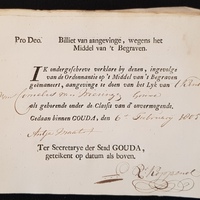 Pro Deo. Billiet van aangevinge, wegens het
Middel van 't Begraven.
IK ondergeschreve verklare by dezen, ingevolge
van de Ordonnantie op 't Middel van 't Begraven
geëmaneert, aangevinge te doen van het Lyk van
Cornelis van
als gehorende onder de Classis van d' onvermogende.
Gedaan binnen GOUDA, den 6e February 1805
Ter Secretarye der Stad GOUDA,
geteikent op datum als boven.